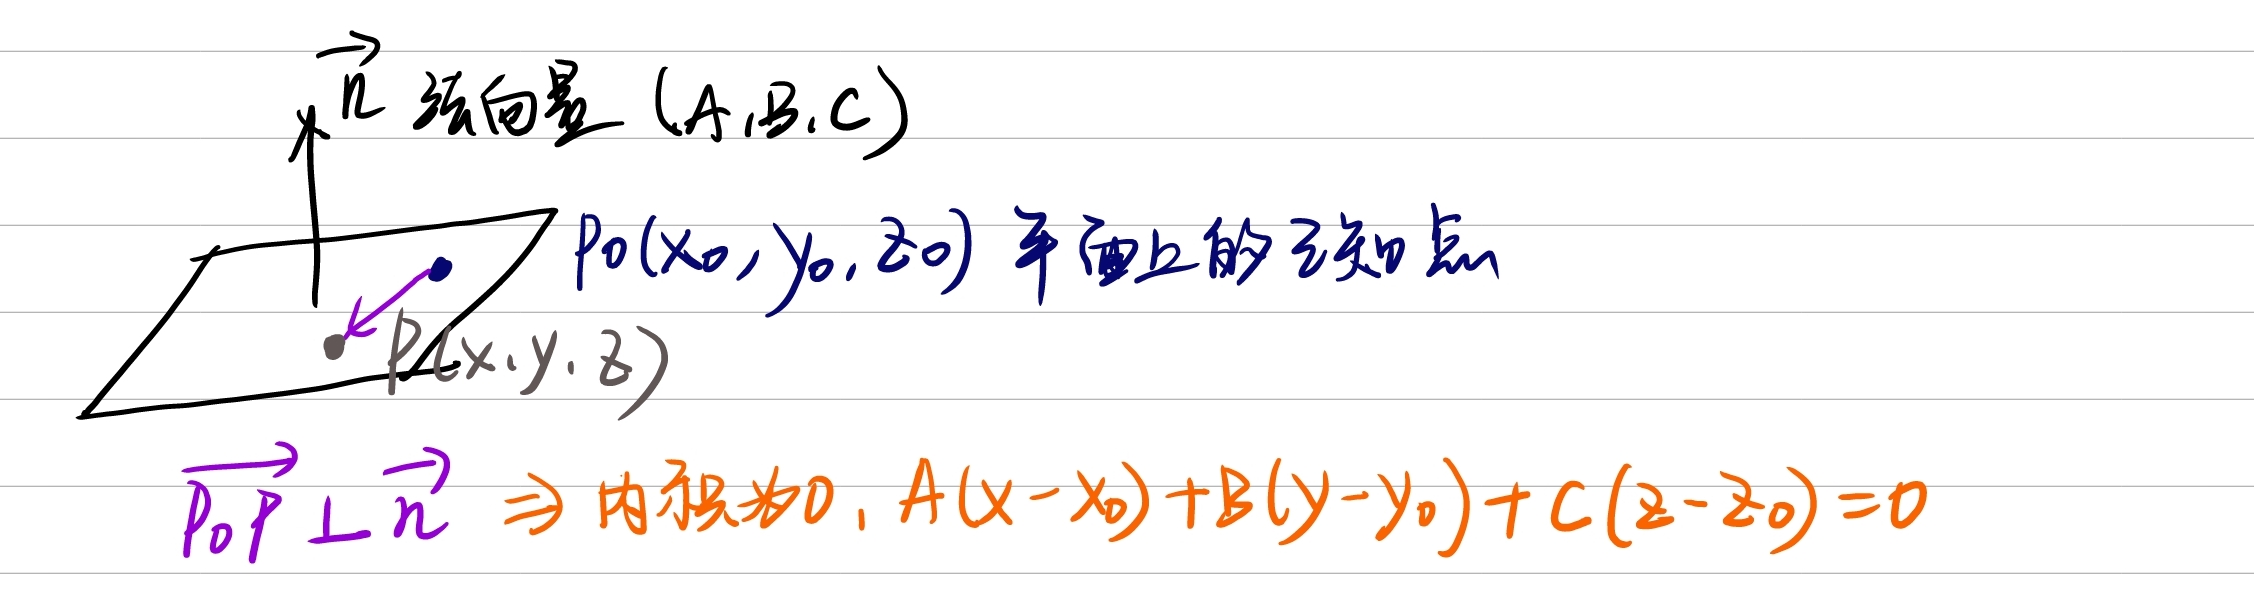 n⃗ 法向量 (A,B,C)
P₀(x₀, y₀, z₀) 平面上的已知点
P(x,y,z)
P₀P⃗ ⊥ n⃗ ⇒ 内积为0, A(x-x₀)+B(y-y₀)+C(z-z₀)=0